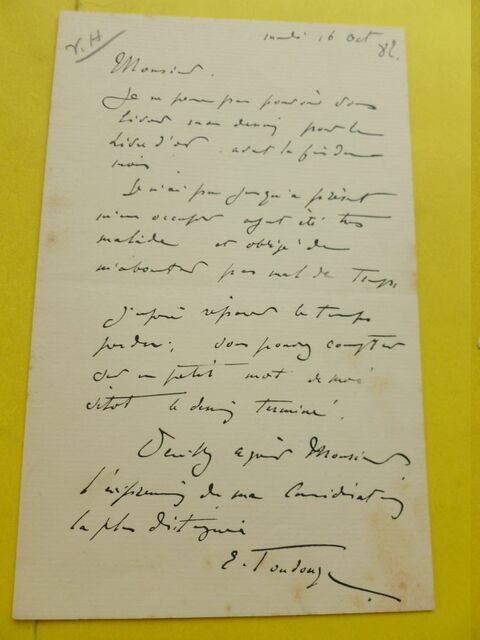 V. H
lundi 16 Oct 82.
Monsieur.
Je ne pense pas pouvoir vous
livrer mon dessin pour le
Livre d'or avant la fin du
mois
Je n'ai pu jusqu'à présent
m'en occuper ayant été très
malade et obligé de
m'absenter pas mal de temps
J'espère réparer le temps
perdu; vous pouvez compter
sur un petit mot de moi
sitôt le dessin terminé.
Veuillez agréer Monsieur
l'expression de ma considération
la plus distinguée
E. Toudouze